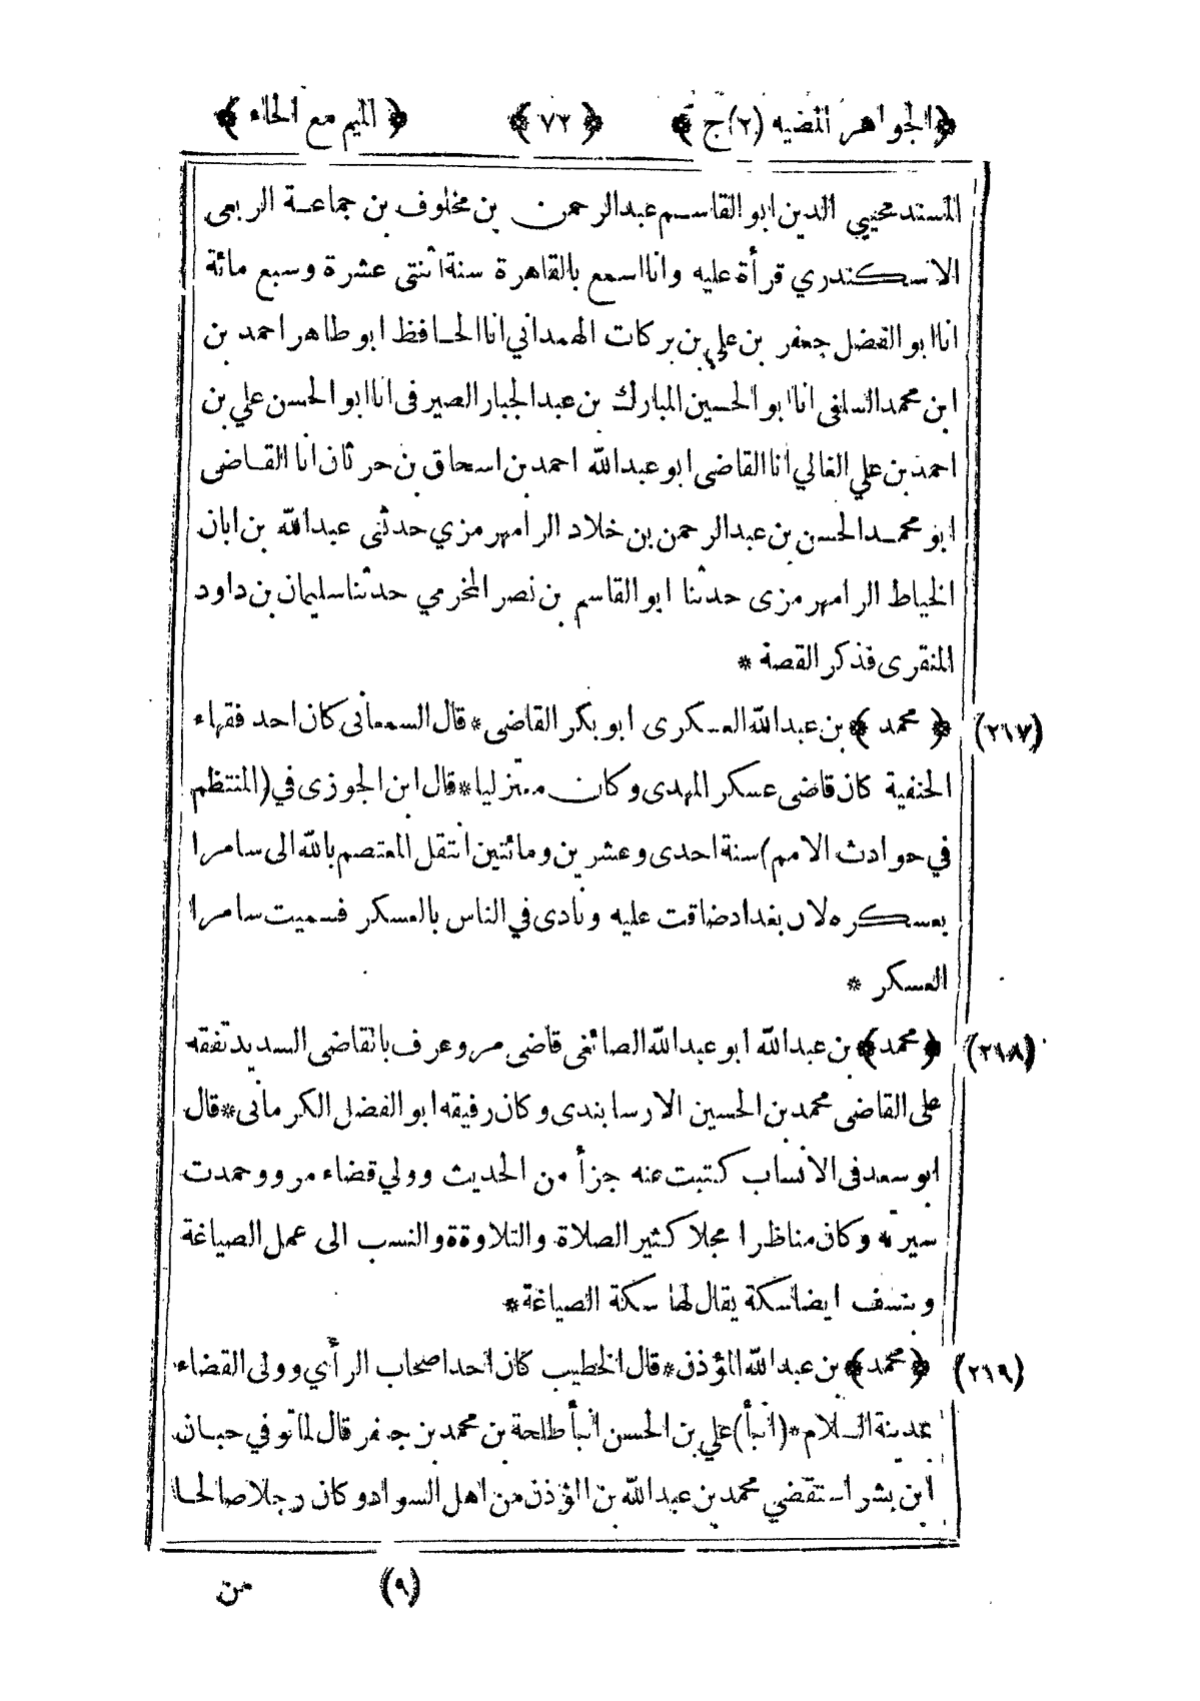 ﴿الجواهر المضيه (٢)ج﴾ ﴿٧٢﴾ ﴿الميم مع الحاء﴾
المسند محيي الدين ابو القاسم عبدالرحمن بن مخلوف بن جماعة الربعى
الاسكندري قرأة عليه وانا اسمع بالقاهرة سنة اثنتى عشرة وسبع مائة
انا ابو الفضل جعفر بن علي بن بركات الهمداني انا الحافظ ابو طاهر احمد بن
ابن محمد السلفى انا ابو الحسين المبارك بن عبد الجبار الصيرفى انا ابو الحسن علي بن
احمد بن علي الغالي انا القاضى ابو عبدالله احمد بن اسحاق بن حر ثان انا القاضى
ابو محمد الحسن بن عبدالرحمن بن خلاد الرامهرمزي حدثنى عبدالله بن ابان
الخياط الرامهرمزى حدثنا ابو القاسم بن نصر المخرمي حدثنا سليمان بن داود
المنقرى فذكر القصة *
(٢٦٧) ﴿محمد﴾ بن عبدالله العسكرى ابو بكر القاضى * قال السمعانى كان احد فقهاء
الحنفية كان قاضى عسكر المهدى وكان معتزليا * قال ابن الجوزى في (المنتظم
في حوادث الامم) سنة احدى وعشرين ومائتين انتقل المعتصم بالله الى سامرا
بعسكره لان بغداد ضاقت عليه ونادى في الناس بالعسكر فسميت سامرا
العسكر *
(٢٦٨) ﴿محمد﴾ بن عبدالله ابو عبدالله الصائغى قاضى مرو عرف بالقاضى السديد تفقه
على القاضى محمد بن الحسين الارسابندى وكان رفيقه ابو الفضل الكرمانى * قال
ابو سعد فى الانساب كتبت عنه جزأ من الحديث وولي قضاء مرو وحمدت
سيرته وكان مناظرا مجلا كثير الصلاة والتلاوة والنسب الى عمل الصياغة
وبنسف ايضا سكة يقال لها سكة الصياغة *
(٢٦٩) ﴿محمد﴾ بن عبدالله المؤذن * قال الخطيب كان احد اصحاب الرأي وولى القضاء
بمدينة السلام * (انبأ) علي بن الحسن انبأ طلحة بن محمد بن جعفر قال لما توفي حبان
ابن بشر استقضي محمد بن عبدالله بن المؤذن من اهل السواد وكان رجلا صالحا
(٩) من